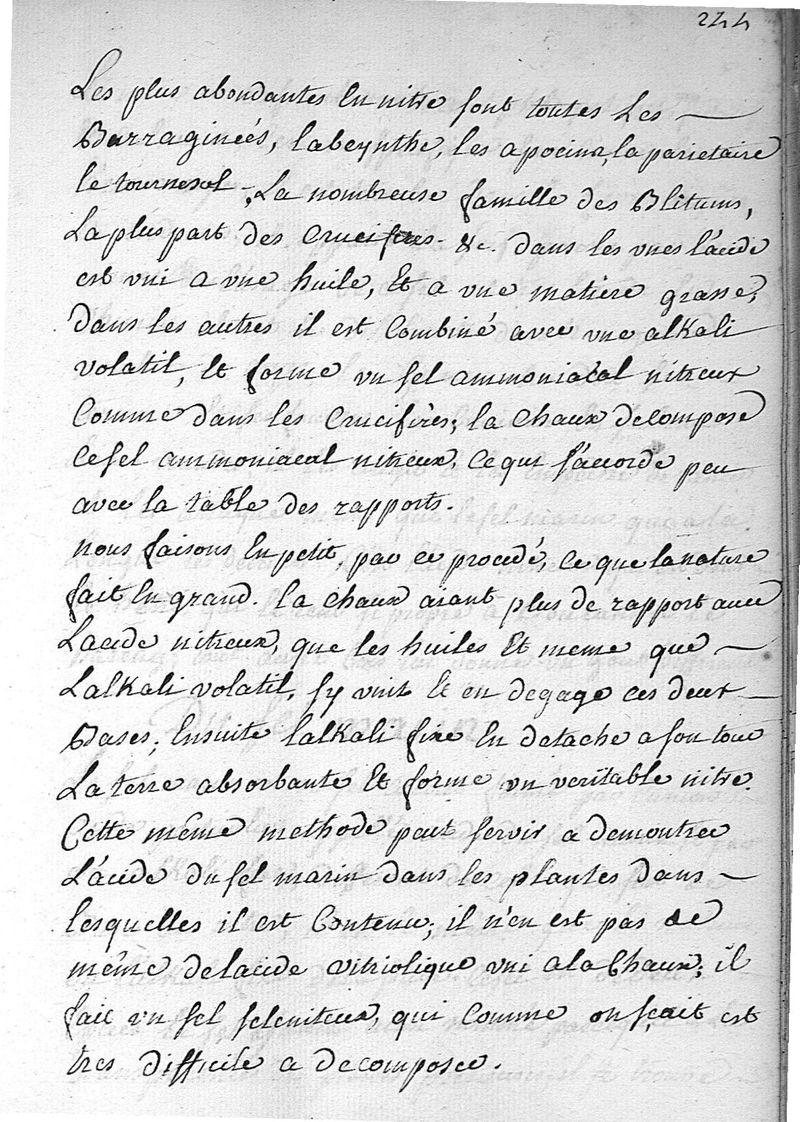 244
Les plus abondantes En nitre sont toutes Les —
Burraginéés, labsynthe, les apocins, la parietaire
le tournesol, La nombreuse famille des Blitums,
La plus part des Crucifres. &c. dans les unes l'acide
est uni a une huile, Et a une matière grasse,
dans les autres il est Combiné avec une alkali
volatil, Et forme un sel ammoniacal nitreux
Comme dans les Crucifères; la Chaux decompose
Ce sel ammoniacal nitreux, Ce qui s'accorde peu
avec la table des rapports.
nous faisons En petit, par ce procedé, Ce que la nature
fait En grand. la Chaux aiant plus de rapport avec
L'acide nitreux, que les huiles Et meme que —
L'alkali volatil, s'y unit Et en degage ces deux —
Bases; Ensuite l'alkali fixe En detache a son tour
La terre absorbante Et forme un veritable nitre.
Cette même methode peut servir a demontrer
L'acide du sel marin dans les plantes dans —
lesquelles il est Contenu; il n'en est pas de
même de lacide vitriolique uni a la Chaux; il
fait un sel seleniteux, qui Comme on sçait est
tres difficile a decomposer.